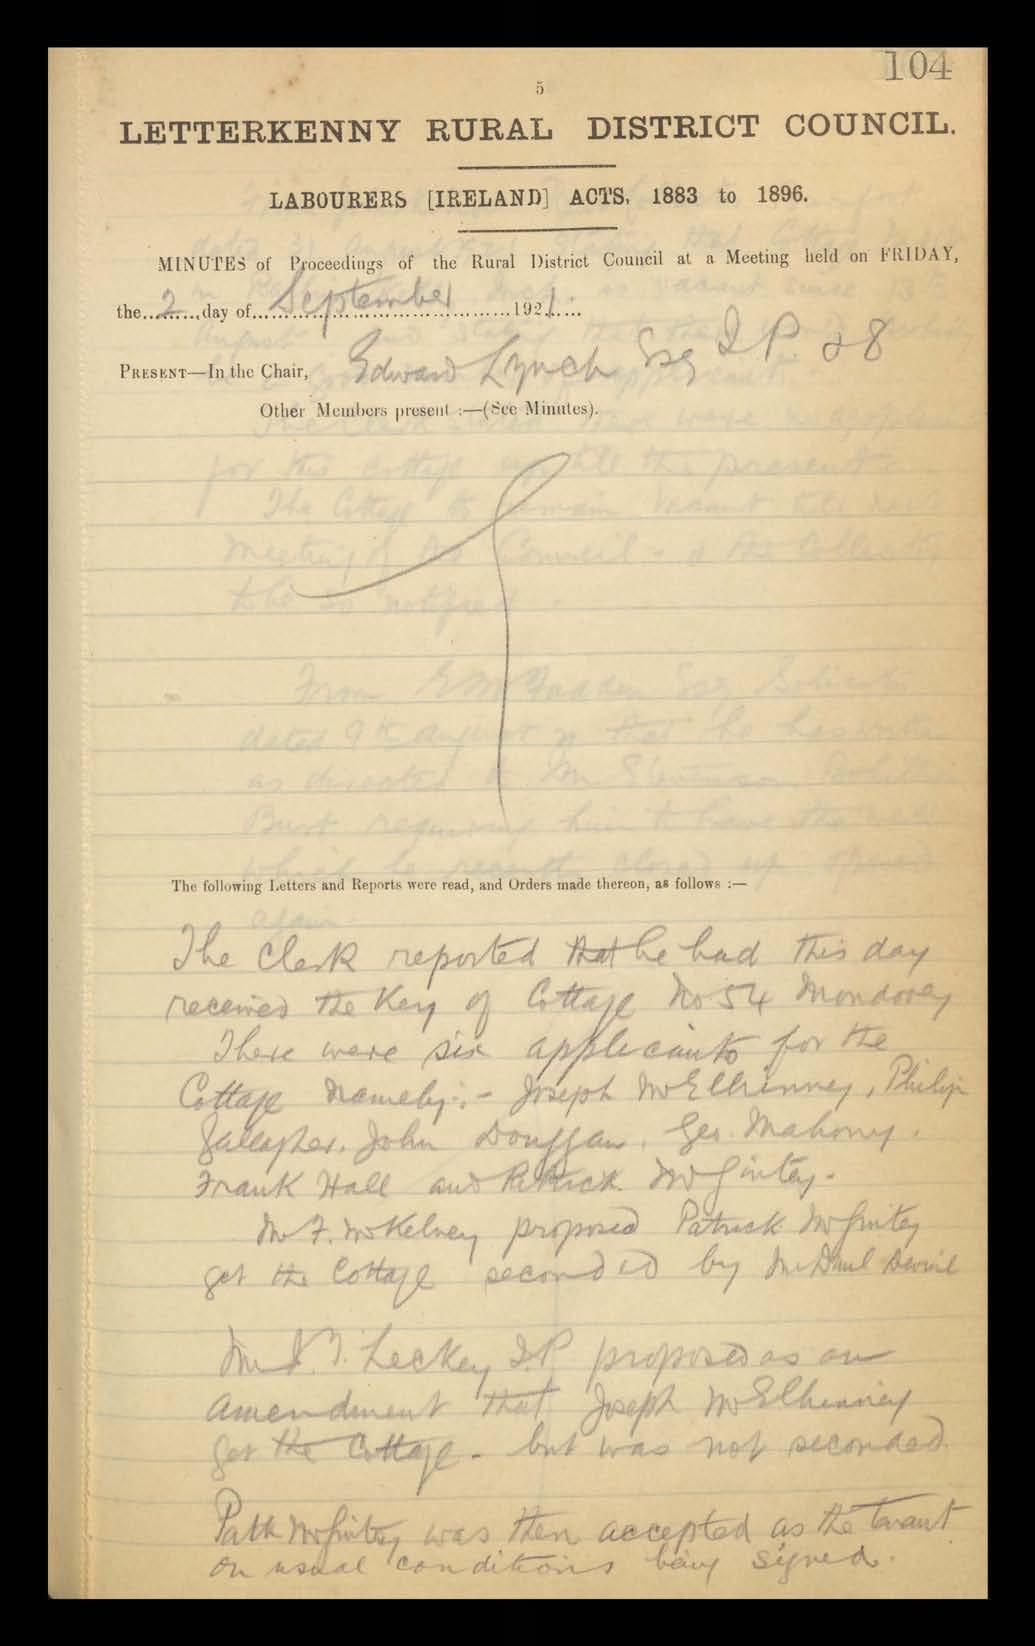 104
5
LETTERKENNY RURAL DISTRICT COUNCIL.
LABOURERS [IRELAND] ACTS, 1883 to 1896.
MINUTES of Proceedings of the Rural District Council at a Meeting held on FRIDAY,
the 2 day of September 1921.
PRESENT—In the Chair, Edward Lynch Esq J.P.
Other Members present :—(See Minutes).
The following Letters and Reports were read, and Orders made thereon, as follows :—
The Clerk reported that he had this day
received the Key of Cottage No 54 Mondooey
There were six applicants for the
Cottage namely:- Joseph McElhinney, Philip
Gallagher, John Douggan, Geo. Mahony.
Frank Hall and Patrick McGintey-
Mr F. McKelvey proposed Patrick McGintey
get the Cottage seconded by Mr Danl
Mr J. T. Leckey J.P proposed as an
amendment that Joseph McElhinney
get the Cottage - but was not seconded.
Patk McGintey was then accepted as the tenant
on usual conditions being signed.